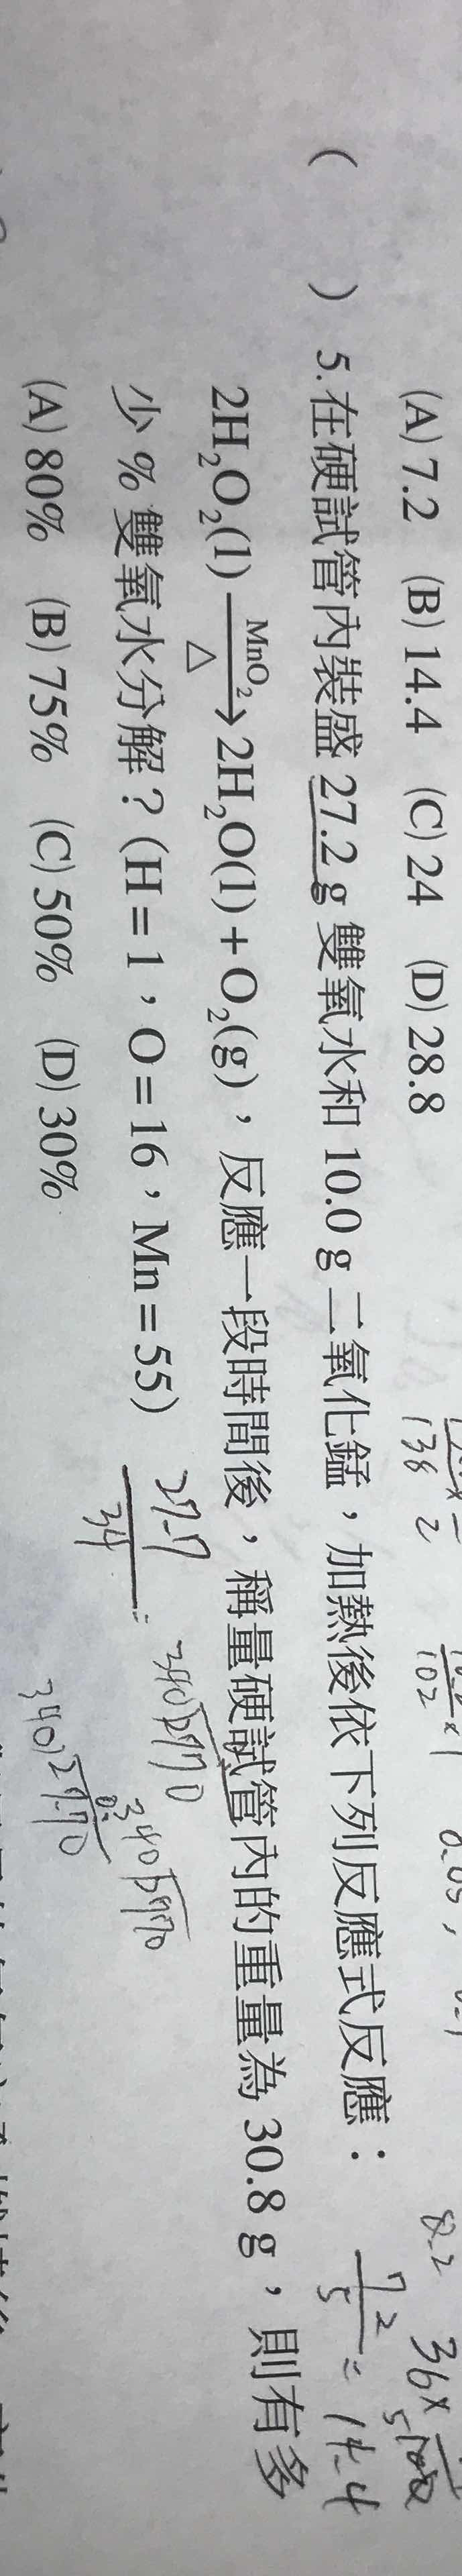 (A) 7.2 (B) 14.4 (C) 24 (D) 28.8
( ) 5. 在硬試管內裝盛 27.2 g 雙氧水和 10.0 g 二氧化錳，加熱後依下列反應式反應：
2H₂O₂(l) MnO₂ △ → 2H₂O(l) + O₂(g)，反應一段時間後，稱量硬試管內的重量為 30.8 g，則有多
少 % 雙氧水分解？(H = 1，O = 16，Mn = 55)
(A) 80% (B) 75% (C) 50% (D) 30%
138
2
102
8.2
36×
= 14.4
34